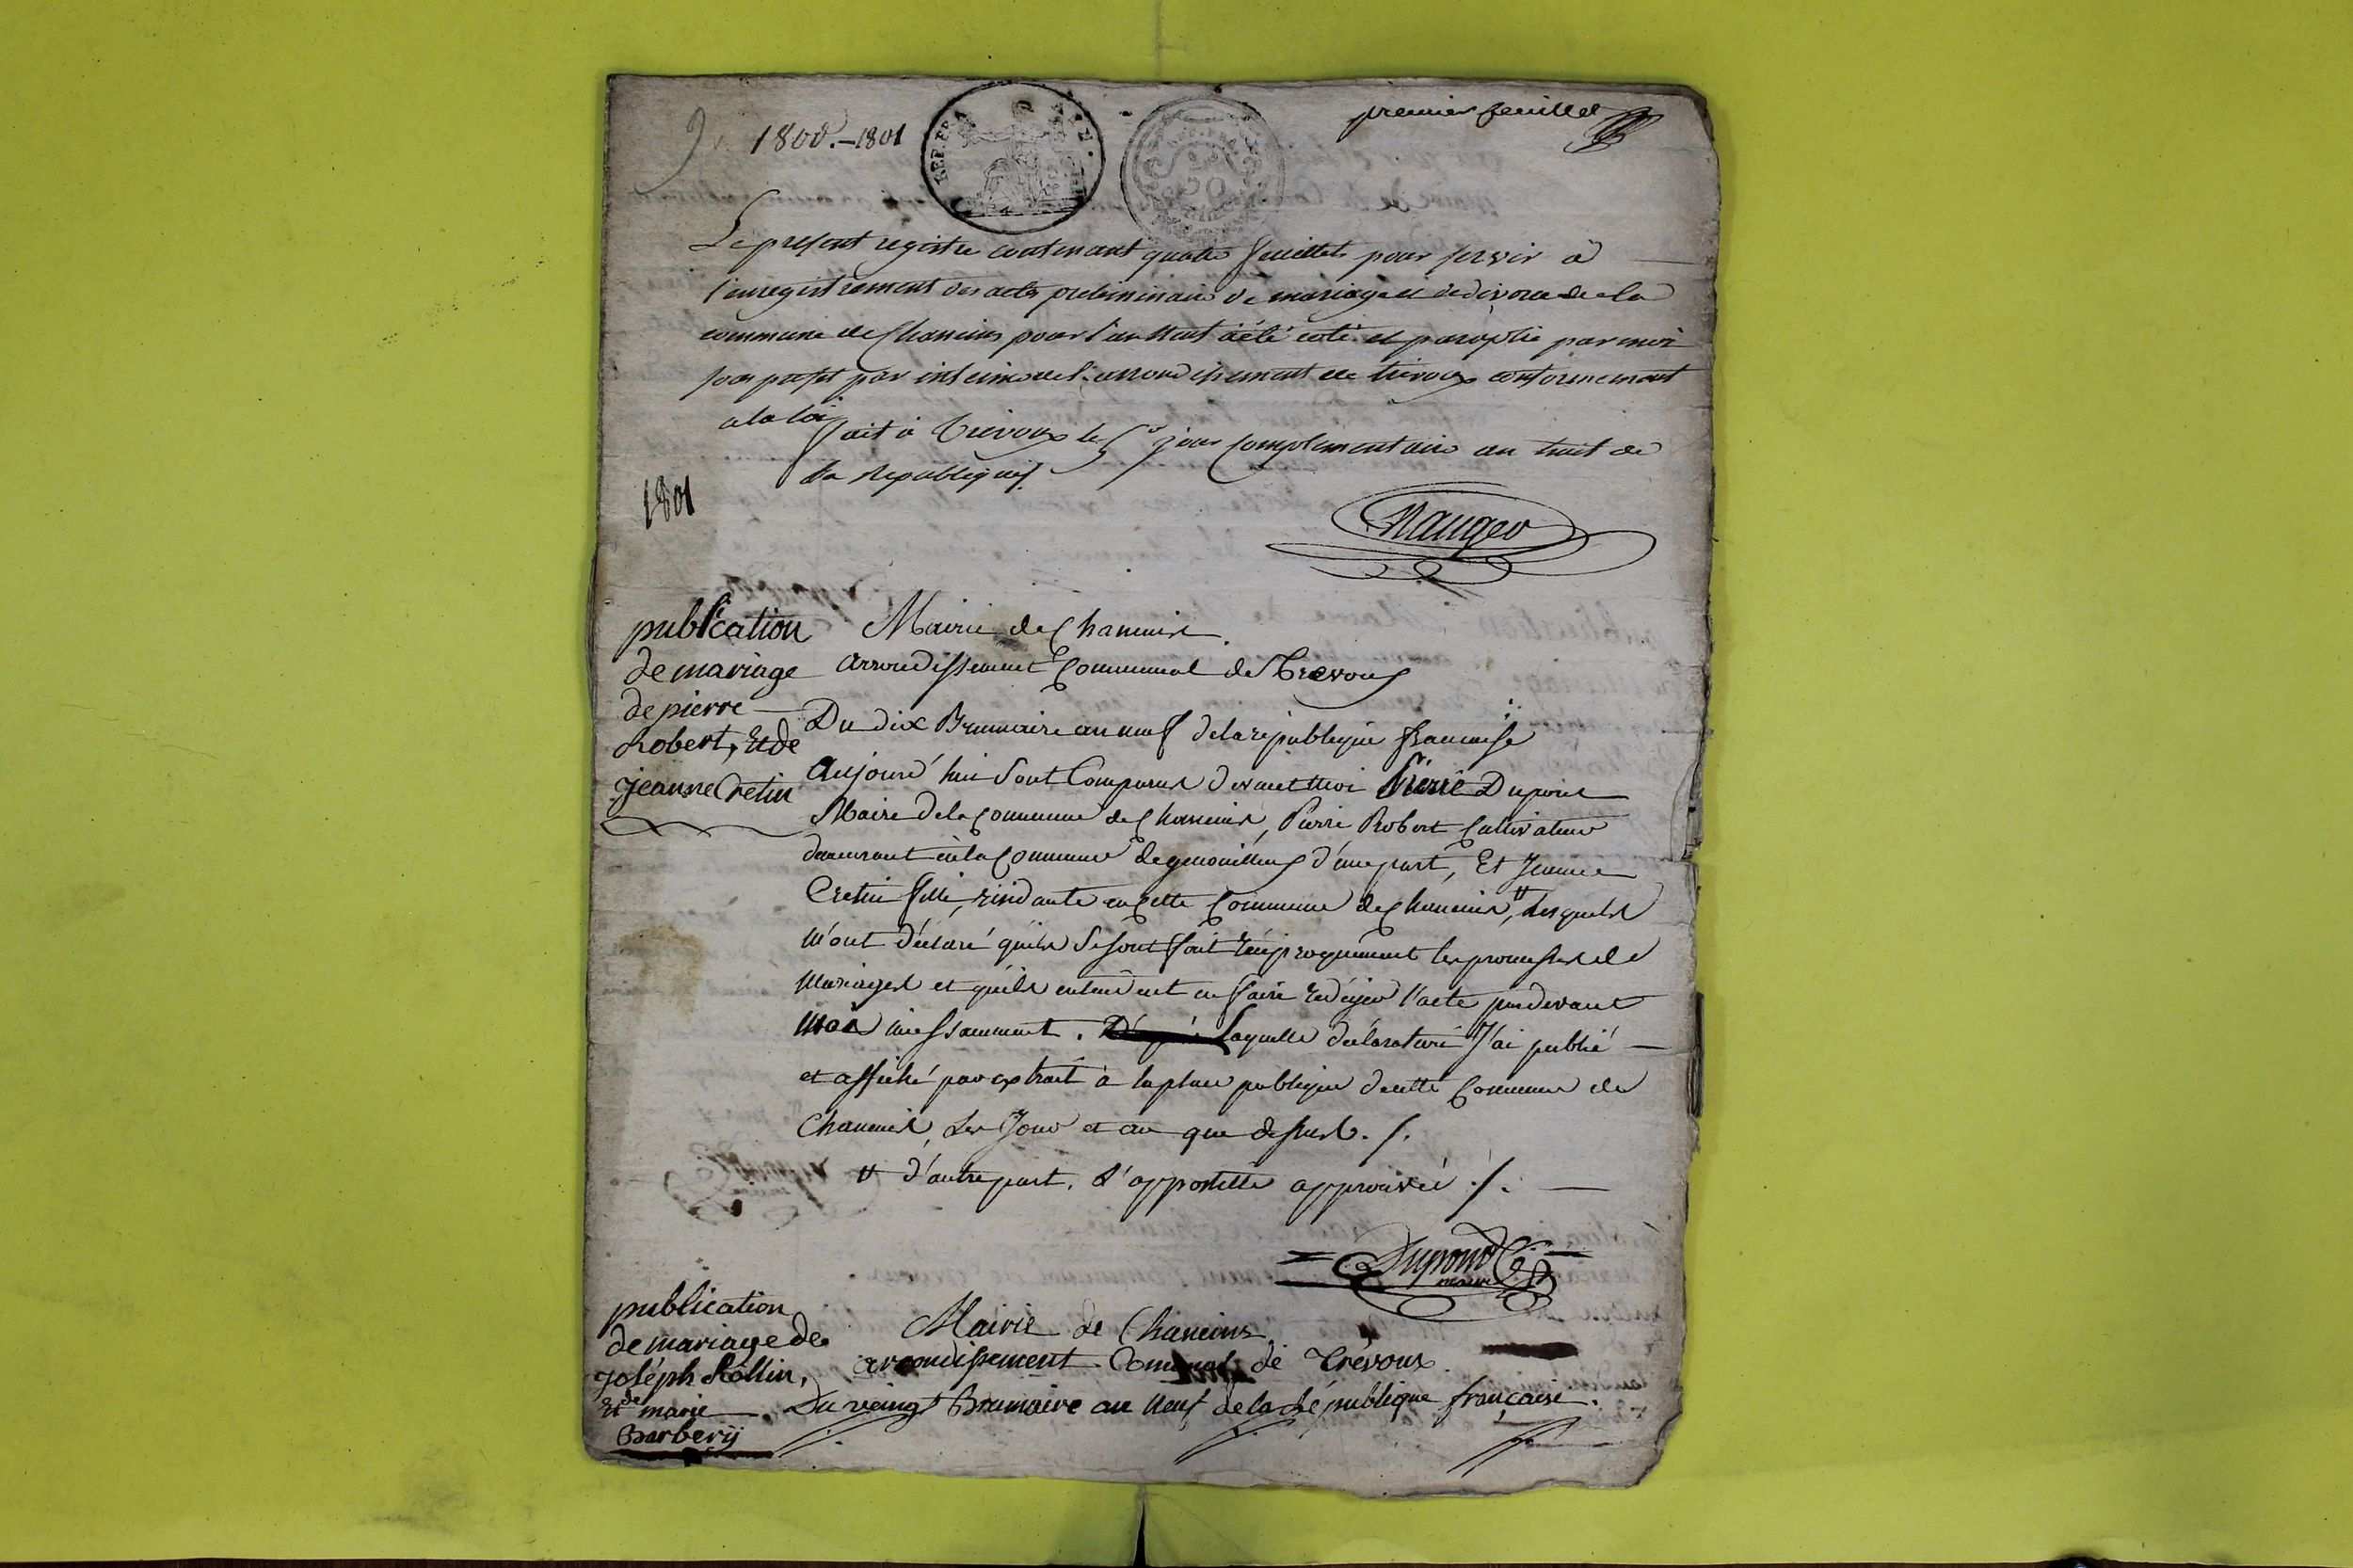 1800.-1801
REP. FRA
premier feuillet
Le present registre contenant quatre feuillets pour servir à
l'enregistrement des actes preliminaire de mariage et de divorce de la
commune de Chaneins pour l'an neuf a été coté et paraphé par moi
sous prefet par interim de l'arrondissement de trevoux conformement
a la loi
fait à Trevoux le 5e jour complementaire an huit de
la Republique
1801
publication
de mariage
de pierre
Robert, Et de
jeanne Cretin
Mairie de Chaneins
arrondissement Communal de Trévoux
Du dix Brumaire an neuf de la république française
aujourd'hui sont Comparus devant moi Pierre Dupond
Maire de la Commune de Chaneins, Pierre Robert Cultivateur
demeurant en la Commune de genouilleux d'une part, Et Jeanne
Cretin fille, résidante en Cette Commune de Chaneins, " lesquels
m'ont déclaré qu'ils se sont fait réciproquement les promesses de
mariages et qu'ils entendent en faire rédiger l'acte pardevant
moi incessamment. laquelle déclaration J'ai publié
et affiché par extrait à la place publique de cette Commune de
Chaneins, Les Jour et an que dessus ./.
" d'autre part. L'appostille approuvée ./.
Dupond
maire
publication
de mariage de
joséph Rollin,
Et de marie
Barberij
Mairie de Chaneins
arrondissement Comunal de Trévoux.
Du vieingt Brumaire an neuf de la République française.